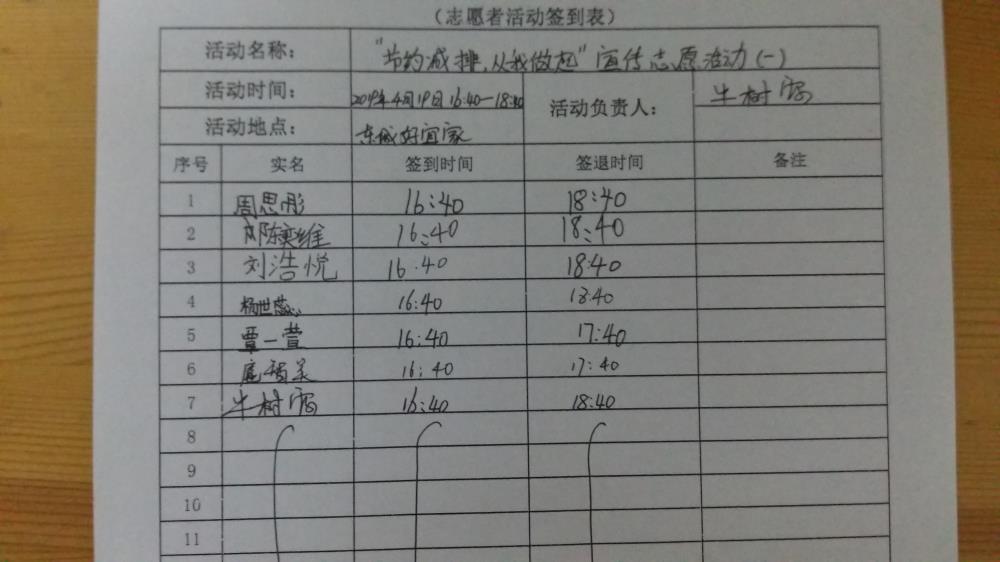 （志愿者活动签到表）
活动名称： "节约减排，从我做起"宣传志愿活动(一)
活动时间： 2019年4月19日16:40—18:40 活动负责人： 牛树
活动地点： 东城好宜家
序号 实名 签到时间 签退时间 备注
1 周思彤 16:40 18:40
2 邝陈奕维 16:40 18:40
3 刘浩悦 16:40 18:40
4 杨世蕊 16:40 18:40
5 覃一萱 16:40 17:40
6 16:40 17:40
7 牛树 16:40 18:40
8
9
10
11